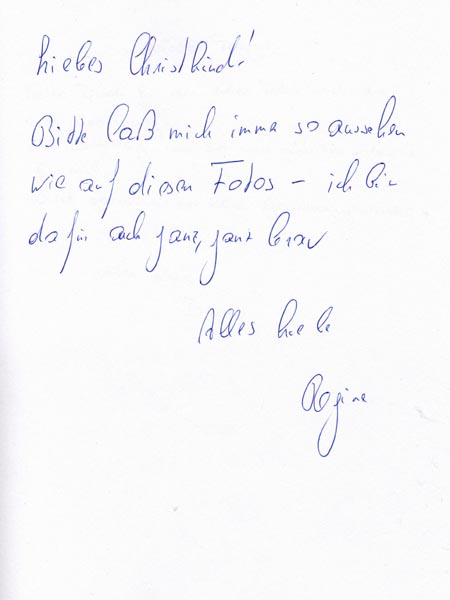 Liebes Christkind!
Bitte laß mich imma so aussehen
wie auf diesen Fotos – ich bin
dafür auch ganz, ganz brav
Alles Liebe
Regina